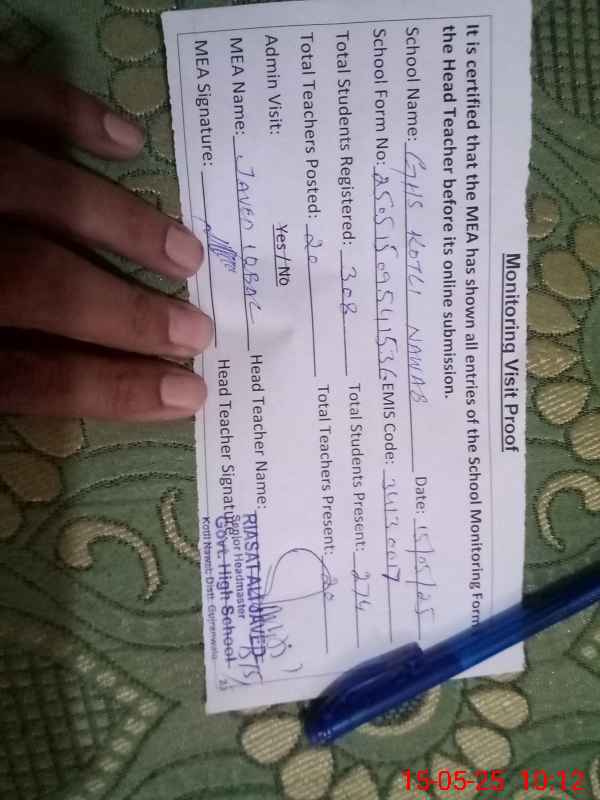 Monitoring Visit Proof
It is certified that the MEA has shown all entries of the School Monitoring Form
the Head Teacher before its online submission.
School Name: GHS KOTLI NAWAB Date: 15/05/25
School Form No: EMIS Code: 34130017
Total Students Registered: 308 Total Students Present: 274
Total Teachers Posted: 20 Total Teachers Present: 20
Admin Visit: Yes / No
MEA Name: JAVED IQBAL Head Teacher Name:
MEA Signature: Head Teacher Signature
RIASAT ALI JAVED
Senior Headmaster
Govt. High School
Kotli Nawab Distt: Gujranwala
15-05-25 10:12